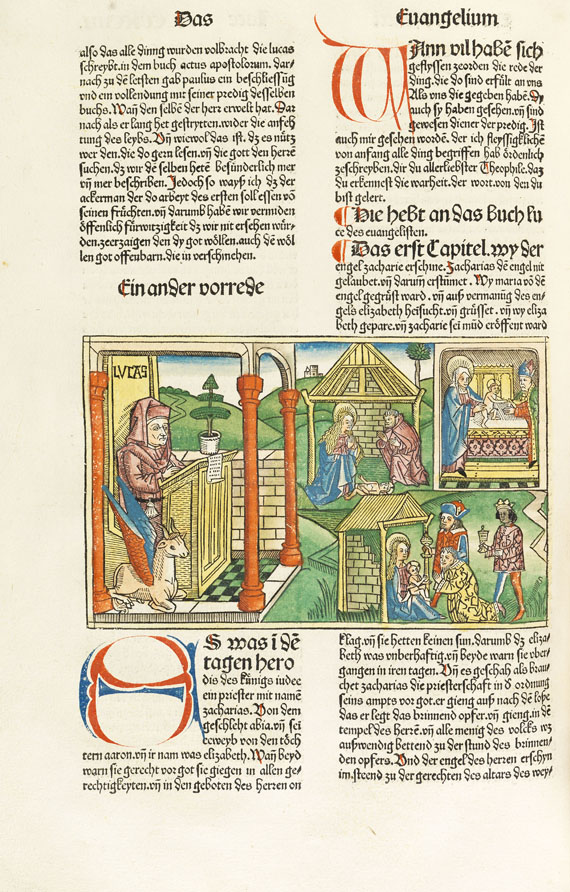 Das
Euangelium
also das alle dinng wurden volbracht die lucas
schreybt.in dem buch actus apostolorum. dar-
nach zu dē letsten gab paulus ein beschliessūg
vnd ein vollendung mit seiner predig desselben
buchs. Wañ den selbē der herr erwelt hat. Dar
nach als er lang het gestrytten.wider die anfech
tung des leybs. Vñ wiewol das ist. dz es nütz
wer den.die do gern lesen.vñ die gott den herrē
suchen.dz wir dē selben hetē besünderlich mer
vñ mer beschriben. Jedoch so wayß ich dz der
ackerman der do arbeyt des ersten soll essen vō
seinen früchten. vñ darumb habē wir vermiden
öffenlich fürwitzigkeit dz wir nit ersehen wür-
den.zeerzaigen den dy got wöllen.auch dē wöl
len got offenbarn.die in verschmehen.
Ein ander vorrede
WAnn vil habē sich
geflyssen zeorden die rede der
ding.die do sind erfült an vns
Als vns die gegeben habē. Dy
auch sy haben gesehen.vñ sind
gewesen diener der predig. Ist
auch mir gesehen wordē. der ich fleyssigklichē
von anfang alle ding begriffen hab ordenlich
zeschreyben.dir du allerliebster Theophile.daz
du erkennest die warheit. der wort.von den du
bist gelert.
Hie hebt an das buch lu
ce des euangelisten.
Das erst Capitel.wy der
engel zacharie erschine. Zacharias dē engel nit
gelaubet.vñ darum erstumet. Wy maria vō dē
engel gegrüst ward. vñ auß vermanūg des en-
gels elizabeth heisucht.vñ grüsset. vñ wy eliza
beth gepare.vñ zacharie sei mūd eröffent ward
LVCAS
ES was ī dē
tagen hero
dis des künigs iudee
ein priester mit namē
zacharias. Von dem
geschlecht abia.vñ sei
eeweyb von den töch
tern aaron.vñ ir nam was elizabeth. Wañ beyd
warn sie gerecht vor got sie giegen in allen ge-
rechtigkeyten.vñ in den geboten des herren on
klag.vñ sie hetten keinen sun.darumb dz eliza-
beth was vnberhaftig.vñ beyde warn sie vber-
gangen in iren tagen. Vñ es geschah als brau-
chet zacharias die priesterschaft in d ordnung
seins ampts vor got.er gieng auß nach dē lose
das er legt das brinnend opfer.vñ gieng.in dē
tempel des herrē.vñ alle menig des volcks wz
außwendig bettend zu der stund des brinnen-
den opfers. Vnd der engel des herren erschyn
im.steend zu der gerechten des altars des wey-